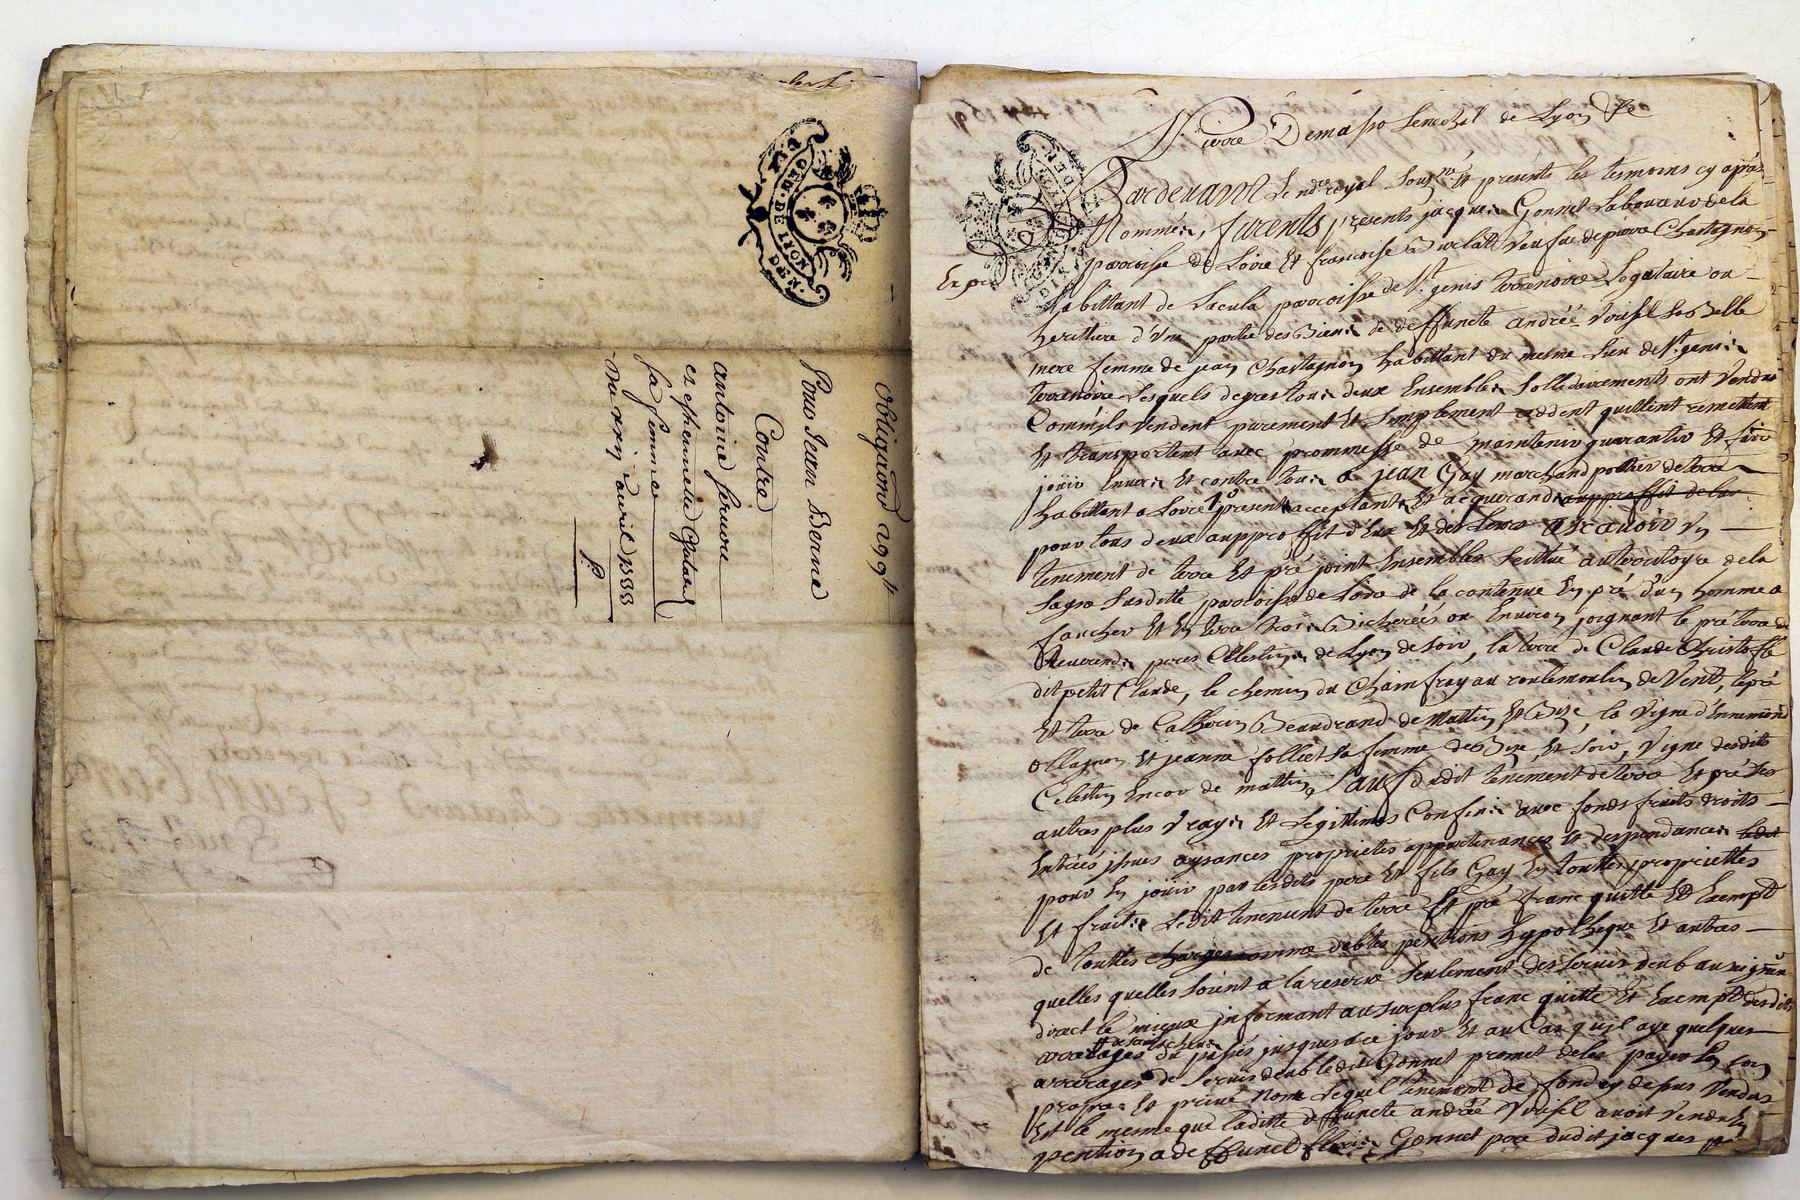 Obligaõn 299#
Pour Jean Berne
Contre
antoine feruve
et
sa femme
Du avril
GEN DE LYON
DEUX SOLS
Pierre Demasso Senechal de Lyon
Pardevant le nore royal soubz.né Et presents les tesmoins cy apres
Nommés, furents presents jacques Gonnet laboureur de la
parroisse de Loire Et francoise veufue de pierre Chastagnon
Exp
habittant de Lacula parroisse de St. genis terrenoire Legataire ou
herittiere d'Une partie des Biens de deffuncte andréé Voisel sa Belle
mere femme de jean Chastagnon habittant du mesme lieu de St. genis
terrenoire Lesquels de gres tous deux Ensembles sollidairements ont Vendus
Comm'ils Vendent purement Et simplement ceddent quittent remettent
Et transportent avec prommesse de maintenir guarantir Et faire
jouir Envers Et contre tous a jean Gay marchand pottier de terre
habittant a Loire presents acceptants Et acquerands aupproffit de luy
pour tous deux aupproffit d'Eux Et des Leurs ascavoir Un
tenement de terre Et pré joint Ensembles scittué au terroitoyre de la
Sagne susditte parroisse de Loire de la contenue En pré d'un homme a
faucher Et En terre trois Bicherées ou Environ joignant le pré terre des
Reverends peres Celestins de Lyon de soir, la terre de Claude Christofle
dit petit Claude, le chemin du Chainfray au moulin de Vent, le pré
Et terre de Catherin Beaudrand de Mattin Et Bize, la Vigne d'Ennemond
ollagnon Et jeanne folliet sa femme de Bize Et soir, Vigne desdits
Celestins Encor de mattin, sauf dudit tenement de terre Et pré ses
autres plus Vrays Et Legittimes Confins avec fonds fruits droits
Entrées jssues aysances proprietes appartenances Et despendances
pour En jouir par lesdits pere Et fils Gay En touttes proprietes
Et fruits Ledit tenement de terre Et pré franc quitte Et Exempt
de touttes charges comme debtes pentions hypotheque Et autres
quelles quelles soient a la reserve seulement des servis deub au seigneur
direct le mieux jnformant au surplus franc quitte Et Exempt desdits
arrerages du passés jusques a ce jour Et au Cas qu'il aye quelques
arrerages de servis deub ledit Gonnet promet de les payer En son
propre Et privé nom Lequel tenement de fond cy dessus Vendus
Est le mesme que laditte deffuncte andréé Voisel avoit Vendu En
pention a deffunct Gonnet pere dudit jacques